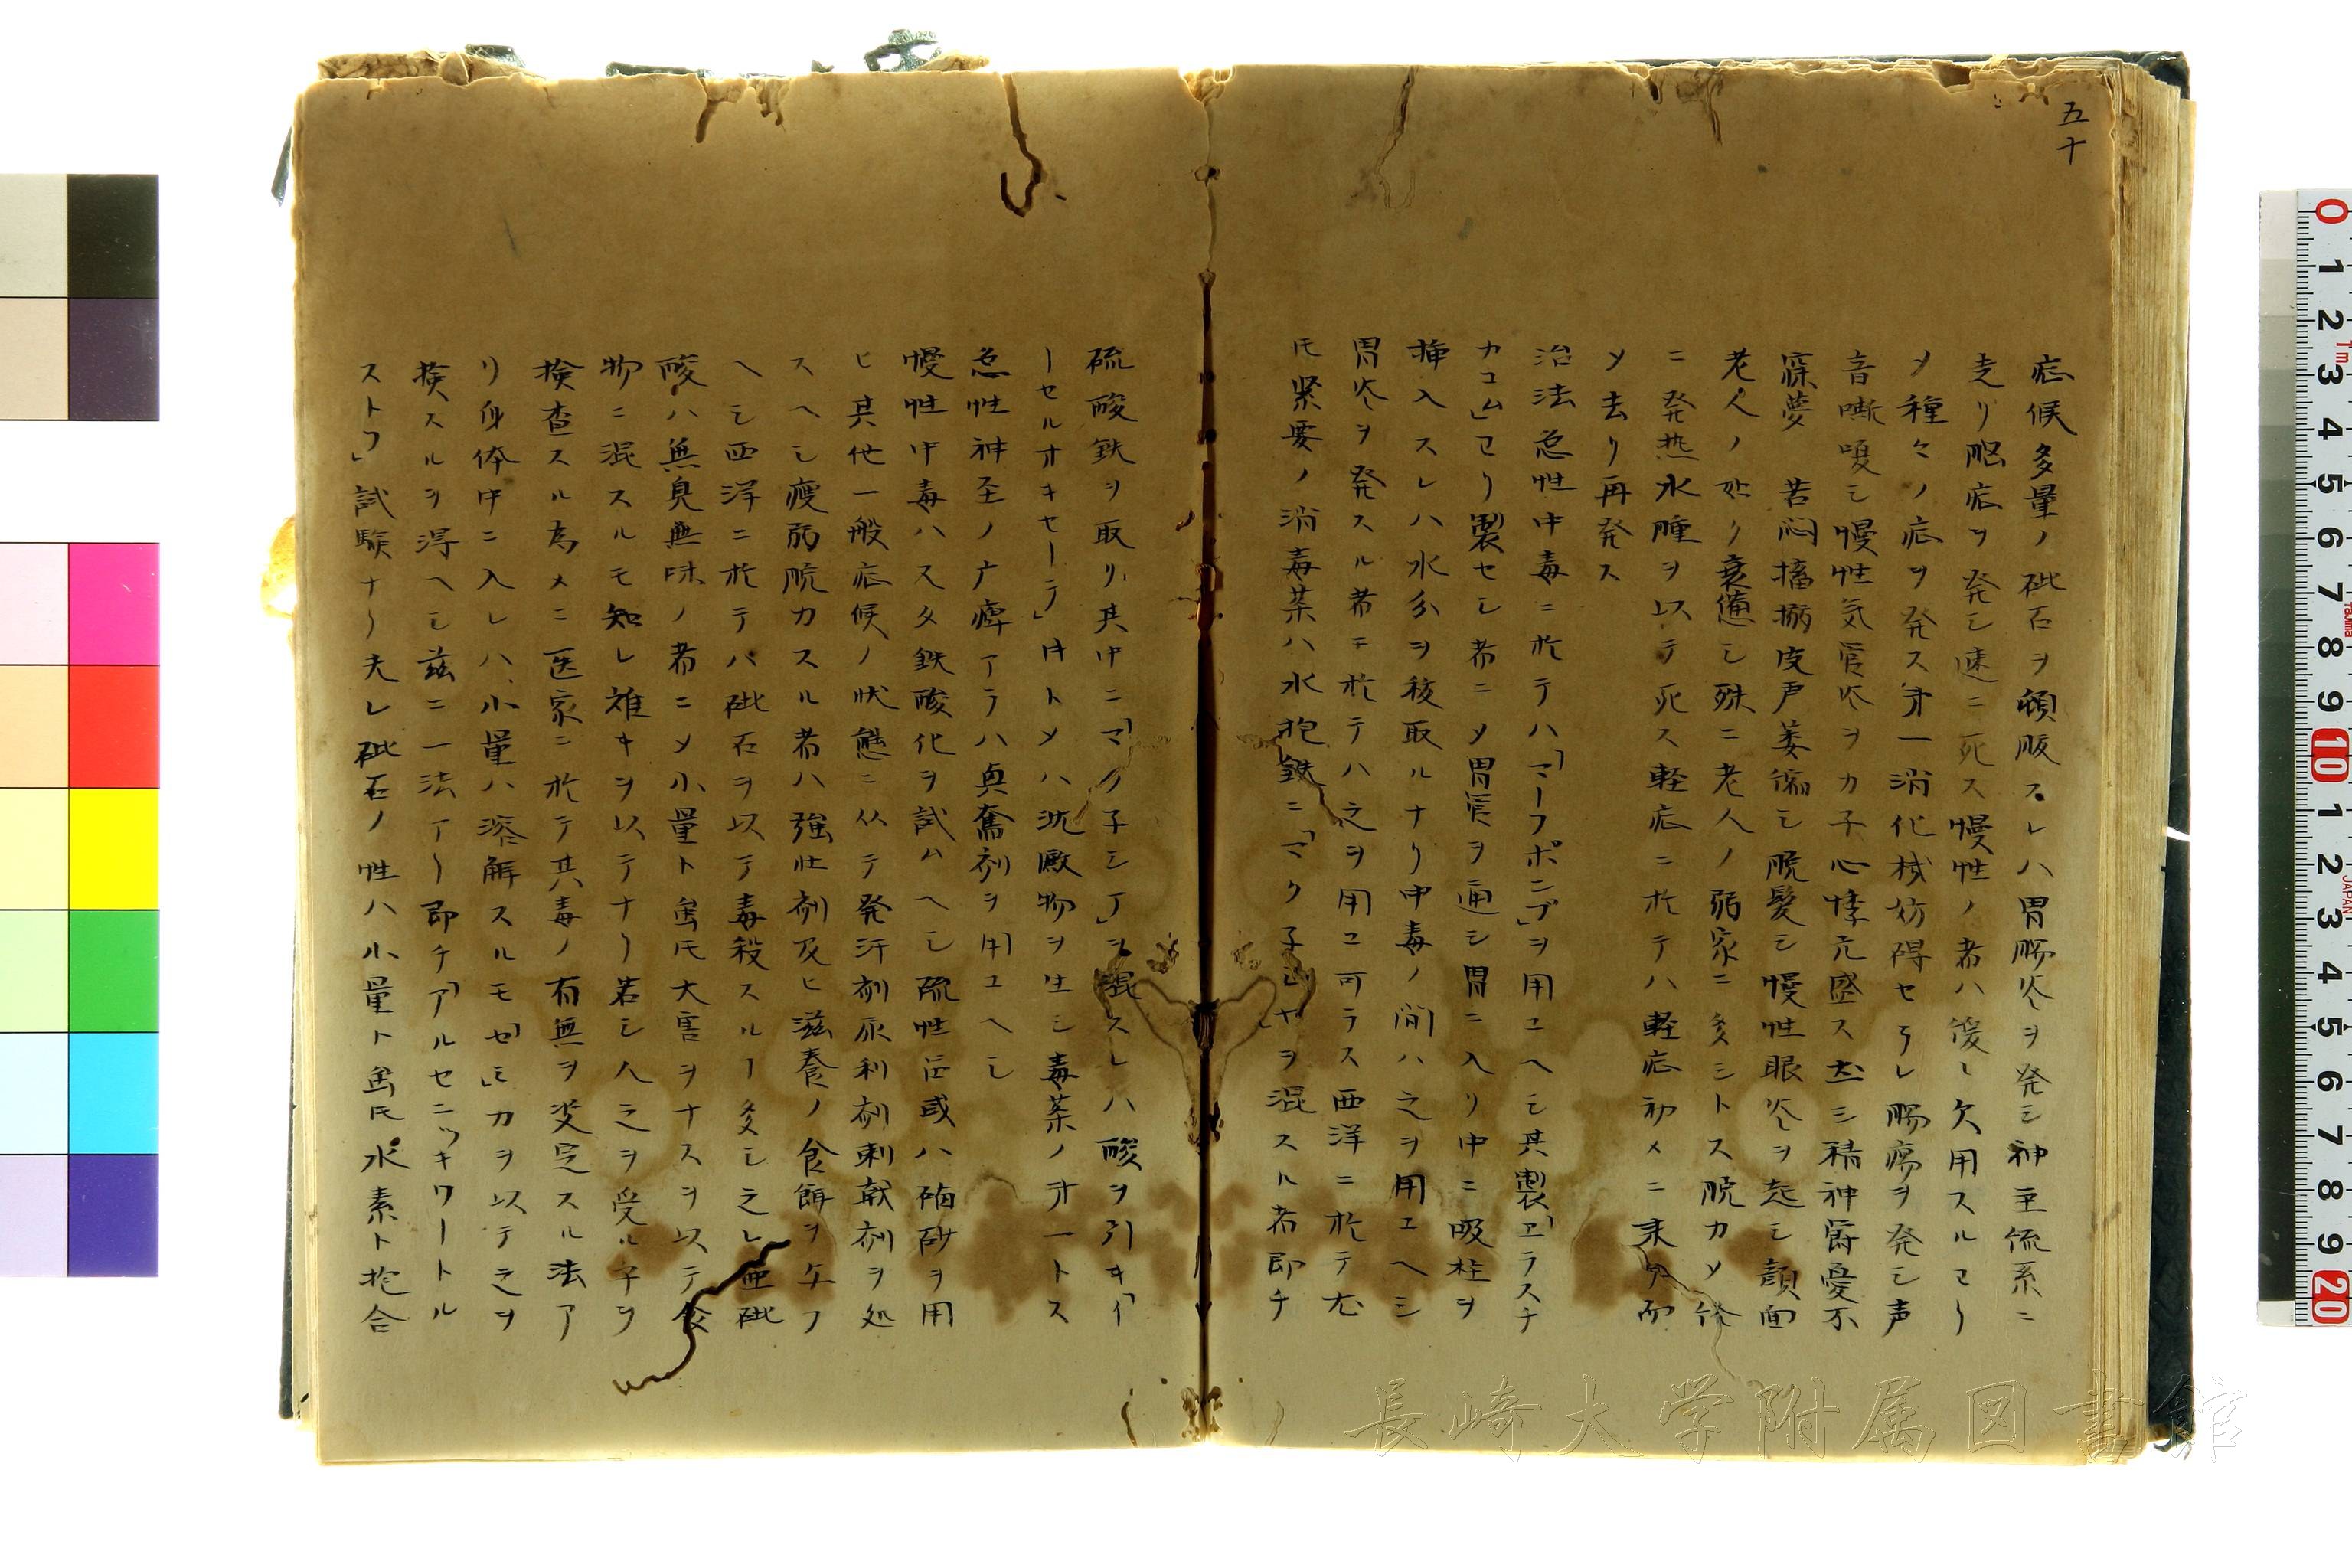 五十
症候多量ノ砒石ヲ頓服スレハ胃腸焮ヲ発シ神巠系ニ
走リ脳症ヲ発シ速ニ死ス慢性ノ者ハ緩々欠用スルヿ
ヲ種々ノ症ヲ発ス第一消化械妨碍セラレ腸瘍ヲ発シ声
音嘶嗄シ慢性気管焮ヲカ子心悸亢盛ス甚シ精神欝憂不
寐夢 苦悶搐搦皮声萎縮シ脱髪シ慢性眼焮ヲ起シ顔面
老人ノ如ク衰憊シ殊ニ老人ノ弱家ニ多シトス脱カメ終
ニ発熱水腫ヲ以テ死ス軽症ニ於テハ軽症初メニ来
メ去リ再発ス
治法急性中毒ニ於テハ「マーフポンプ」ヲ用ユヘシ其製「ヱラスチ
カコム」ヨリ製セシ者ニメ胃管ヲ通シ胃ニ入リ中ニ吸柱ヲ
挿入スレハ水分ヲ移取ルナリ中毒ノ間ハ之ヲ用ユヘシ
胃焮ヲ発スル者ニ於テハ之ヲ用ユ可ラス西洋ニ於テ尤
氏緊要ノ消毒薬ハ水抱鉄ニ「マク子シヤ」ヲ混スル者即チ
硫酸鉄ヲ取リ其中ニ「マク子シア」ヲ混スレハ酸ヲ引キ「イ
ーセルオキセーデ」ト メハ沈厰物ヲ生シ毒薬ノ第一トス
急性神巠ノ痺アラハ奥奮剤ヲ用ユヘシ
慢性中毒ハスタ鉄酸化ヲ試ムヘシ硫性 或ハ砂ヲ用
ヒ其他一般症候ノ状態ニ从テ発汗剤尿利剤刺戟剤ヲ処
スヘシ痩弱脱カスル者ハ強壮剤及ヒ滋養ノ食餌ヲ与フ
ヘシ西洋ニ於テバ砒石ヲ以テ毒殺スルヿ多シ之レ亜砒
酸ハ無臭無味ノ者ニメ小量ト雖氏大害ヲナスヲ以テ食
物ニ混スルモ知レ難キヲ以テナリ若シ人之ヲ受ル字ヲ
検査スル為メニ医家ニ於テ其毒ノ有無ヲ决定スル法ア
リ身体中ニ入レハ小量ハ溶解スルモ「セミ」カヲ以テ之ヲ
検スルヲ得ヘシ茲ニ一法アリ即チ「アルセニツキワートル
ストフ」試験ナリ夫レ砒石ノ性ハ小量ト雖氏水素ト抱合